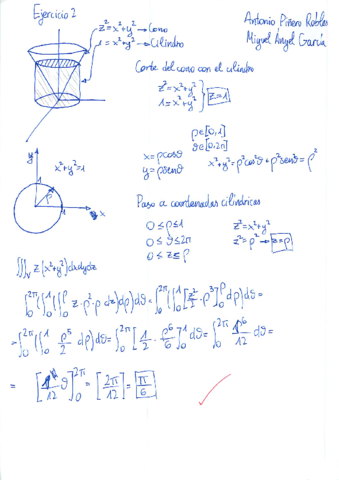 Ejercicio 2
Antonio Piñero Robles
Miguel Ángel García
z²=x²+y² → Cono
1=x²+y² → Cilindro
Corte del cono con el cilindro
z²=x²+y²
1=x²+y² } z=1
ρ∈[0,1]
ϑ∈[0,2π]
x=ρcosϑ
y=ρsenϑ
x²+y²=ρ²cos²ϑ+ρ²sen²ϑ=ρ²
y
x²+y²=1
1
ρ
1
x
Paso a coordenadas cilíndricas
0≤ρ≤1
0≤ϑ≤2π
0≤z≤ρ
z²=x²+y²
z²=ρ² → z=ρ
∭_V z(x²+y²)dxdydz
∫₀^2π(∫₀^1(∫₀^ρ z·ρ²·ρ dz)dρ)dϑ=∫₀^2π(∫₀^1[z²/2·ρ³]₀^ρ dρ)dϑ=
=∫₀^2π(∫₀^1 ρ⁵/2 dρ)dϑ=∫₀^2π[1/2·ρ⁶/6]₀^1 dϑ=∫₀^2π 1⁶/12 dϑ=
=[1/12 ϑ]₀^2π=[2π/12]=π/6